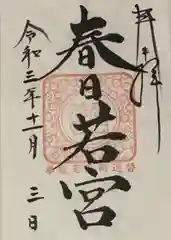 奉拝
春日若宮
令和三年十一月三日